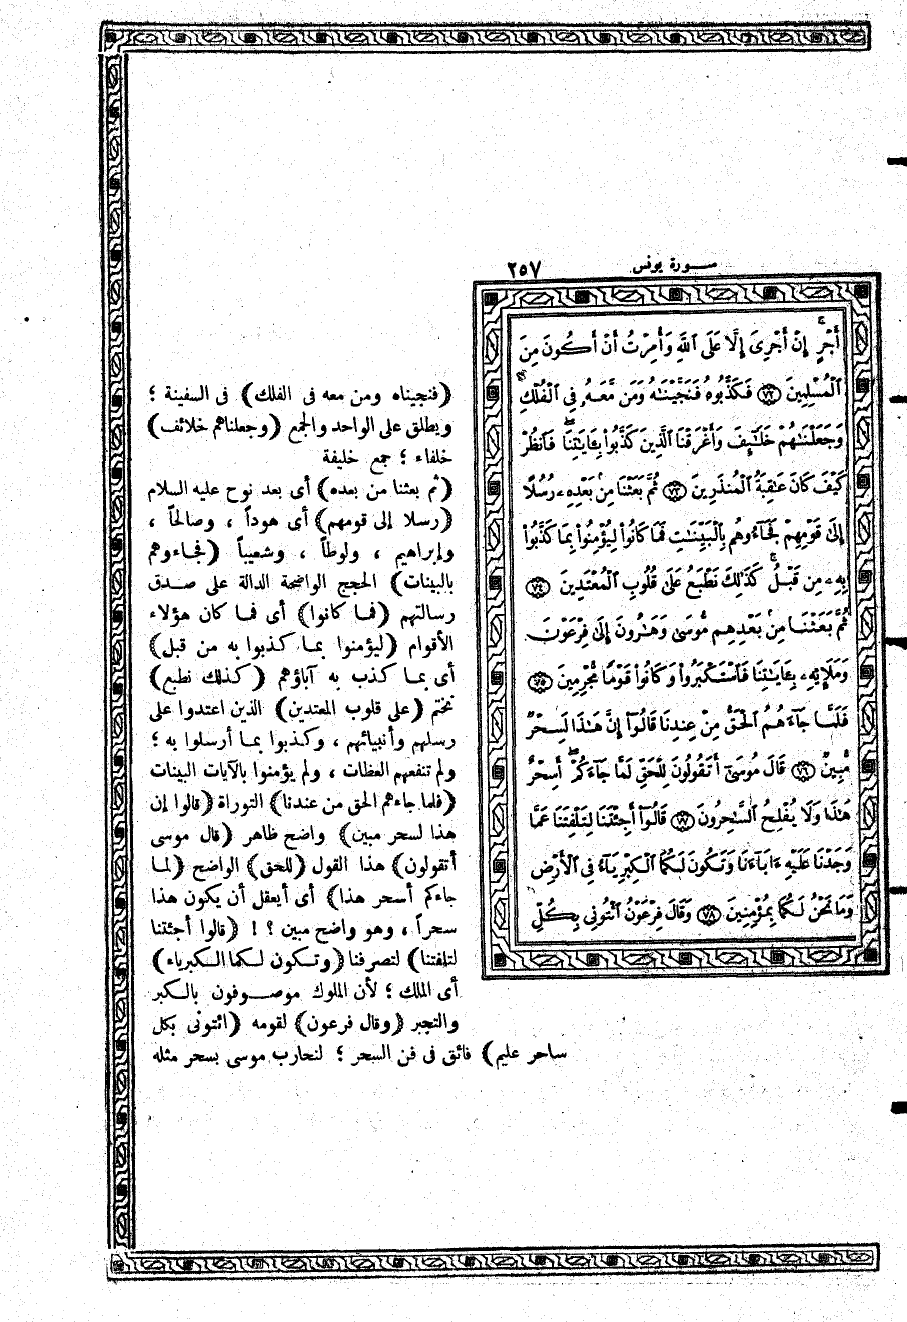 سورة يونس ٢٥٧
أَجْرٍ إِنْ أَجْرِيَ إِلَّا عَلَى ٱللَّهِ وَأُمِرْتُ أَنْ أَكُونَ مِنَ
ٱلْمُسْلِمِينَ ٧٢ فَكَذَّبُوهُ فَنَجَّيْنَٰهُ وَمَن مَّعَهُۥ فِى ٱلْفُلْكِ
وَجَعَلْنَٰهُمْ خَلَٰٓئِفَ وَأَغْرَقْنَا ٱلَّذِينَ كَذَّبُوا۟ بِـَٔايَٰتِنَا فَٱنظُرْ
كَيْفَ كَانَ عَٰقِبَةُ ٱلْمُنذَرِينَ ٧٣ ثُمَّ بَعَثْنَا مِنۢ بَعْدِهِۦ رُسُلًا
إِلَىٰ قَوْمِهِمْ فَجَآءُوهُم بِٱلْبَيِّنَٰتِ فَمَا كَانُوا۟ لِيُؤْمِنُوا۟ بِمَا كَذَّبُوا۟
بِهِۦ مِن قَبْلُ كَذَٰلِكَ نَطْبَعُ عَلَىٰ قُلُوبِ ٱلْمُعْتَدِينَ ٧٤
ثُمَّ بَعَثْنَا مِنۢ بَعْدِهِم مُّوسَىٰ وَهَٰرُونَ إِلَىٰ فِرْعَوْنَ
وَمَلَإِي۟هِۦ بِـَٔايَٰتِنَا فَٱسْتَكْبَرُوا۟ وَكَانُوا۟ قَوْمًا مُّجْرِمِينَ ٧٥
فَلَمَّا جَآءَهُمُ ٱلْحَقُّ مِنْ عِندِنَا قَالُوٓا۟ إِنَّ هَٰذَا لَسِحْرٌ
مُّبِينٌ ٧٦ قَالَ مُوسَىٰٓ أَتَقُولُونَ لِلْحَقِّ لَمَّا جَآءَكُمْ أَسِحْرٌ
هَٰذَا وَلَا يُفْلِحُ ٱلسَّٰحِرُونَ ٧٧ قَالُوٓا۟ أَجِئْتَنَا لِتَلْفِتَنَا عَمَّا
وَجَدْنَا عَلَيْهِ ءَابَآءَنَا وَتَكُونَ لَكُمَا ٱلْكِبْرِيَآءُ فِى ٱلْأَرْضِ
وَمَا نَحْنُ لَكُمَا بِمُؤْمِنِينَ ٧٨ وَقَالَ فِرْعَوْنُ ٱئْتُونِى بِكُلِّ
(فنجيناه ومن معه فى الفلك) فى السفينة ؛
ويطلق على الواحد والجمع (وجعلناهم خلائف)
خلفاء ؛ جمع خليفة
(ثم بعثنا من بعده) أى بعد نوح عليه السلام
(رسلا إلى قومهم) أى هوداً ، وصالحاً ،
وإبراهيم ، ولوطاً ، وشعيباً (فجاءوهم
بالبينات) الحجج الواضحة الدالة على صدق
رسالتهم (فما كانوا) أى فما كان هؤلاء
الأقوام (ليؤمنوا بما كذبوا به من قبل)
أى بما كذب به آباؤهم (كذلك نطبع)
نختم (على قلوب المعتدين) الذين اعتدوا على
رسلهم وأنبيائهم ، وكذبوا بما أرسلوا به ؛
ولم تنفعهم العظات ، ولم يؤمنوا بالآيات البينات
(فلما جاءهم الحق من عندنا) التوراة (قالوا إن
هذا لسحر مبين) واضح ظاهر (قال موسى
أتقولون) هذا القول (للحق) الواضح (لما
جاءكم أسحر هذا) أى أيعقل أن يكون هذا
سحراً ، وهو واضح مبين ؟ ! (قالوا أجئتنا
لتلفتنا) لتصرفنا (وتكون لكما الكبرياء)
أى الملك ؛ لأن الملوك موصوفون بالكبر
والتجبر (وقال فرعون) لقومه (ائتونى بكل
ساحر عليم) فائق فى فن السحر ؛ لنحارب موسى بسحر مثله